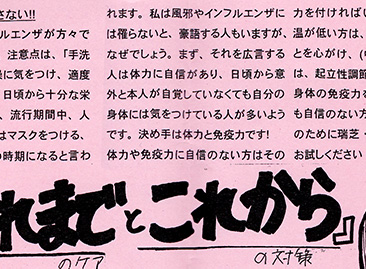 さない!!
ルエンザが方々で
注意点は、「手洗
に気をつけ、適度
日頃から十分な栄
、流行期間中、人
はマスクをつける、
の時期になると言わ
れます。私は風邪やインフルエンザ
には罹らないと、豪語する人もいますが、
なぜでしょう。まず、それを広言する
人は体力に自信があり、日頃から意
外と本人が自覚していなくても自分の
身体には気をつけている人が多いよう
です。決め手は体力と免疫力です!
体力や免疫力に自信のない方はその
力を付ければい
温が低い方は、
とを心がけ、(中
は、起立性調節
身体の免疫力を
も自信のない方
のために瑞芝・
お試しください
れまでとこれから』
のケア
の対策